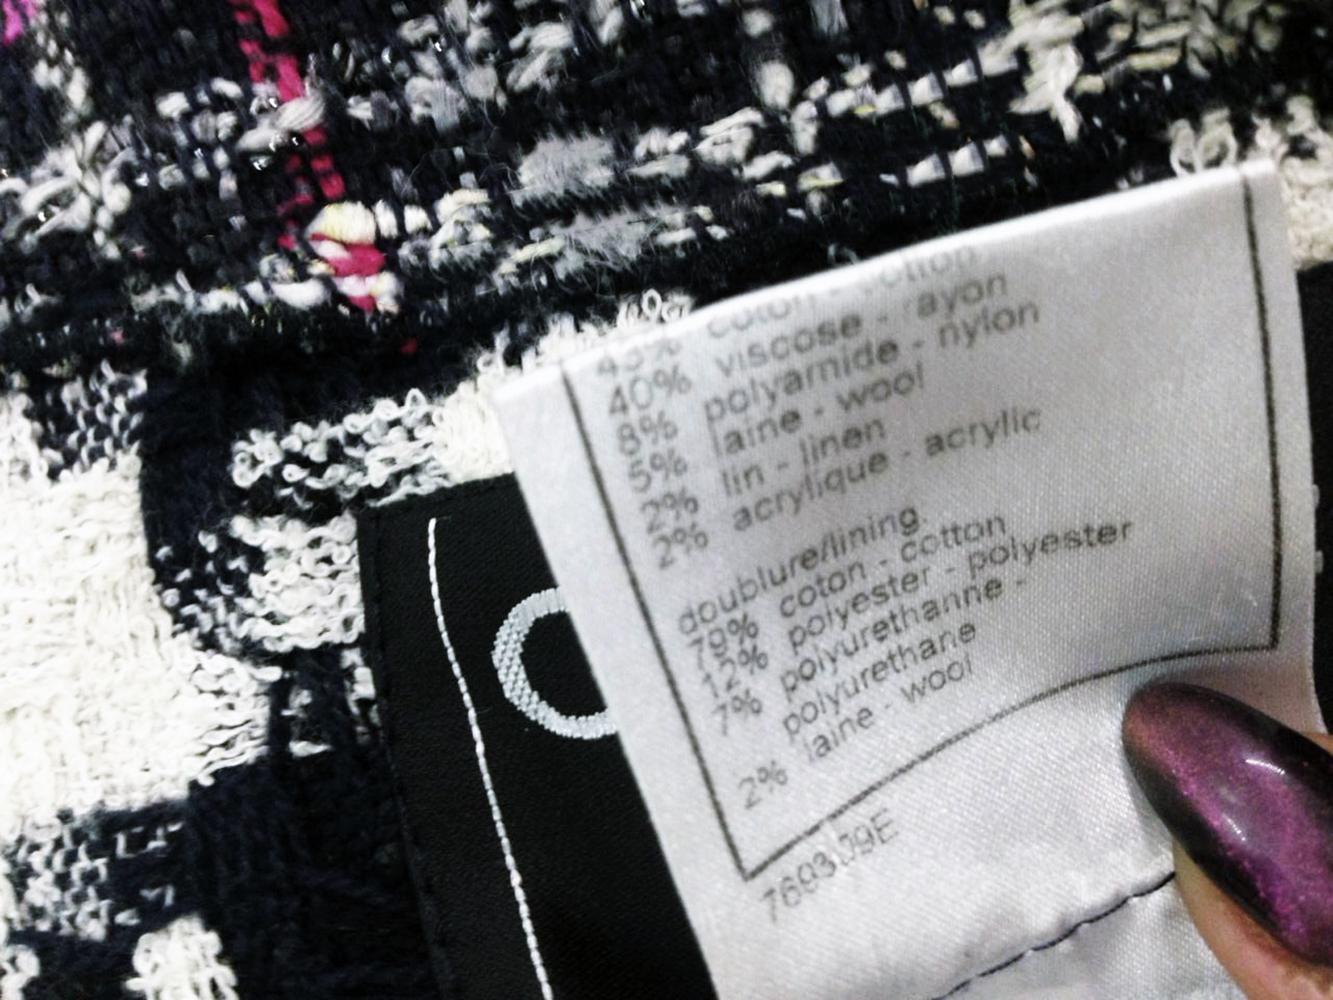 43% coton - cotton
40% viscose - rayon
8% polyamide - nylon
5% laine - wool
2% lin - linen
2% acrylique - acrylic
doublure/lining:
79% coton - cotton
12% polyester - polyester
7% polyurethanne -
polyurethane
2% laine - wool